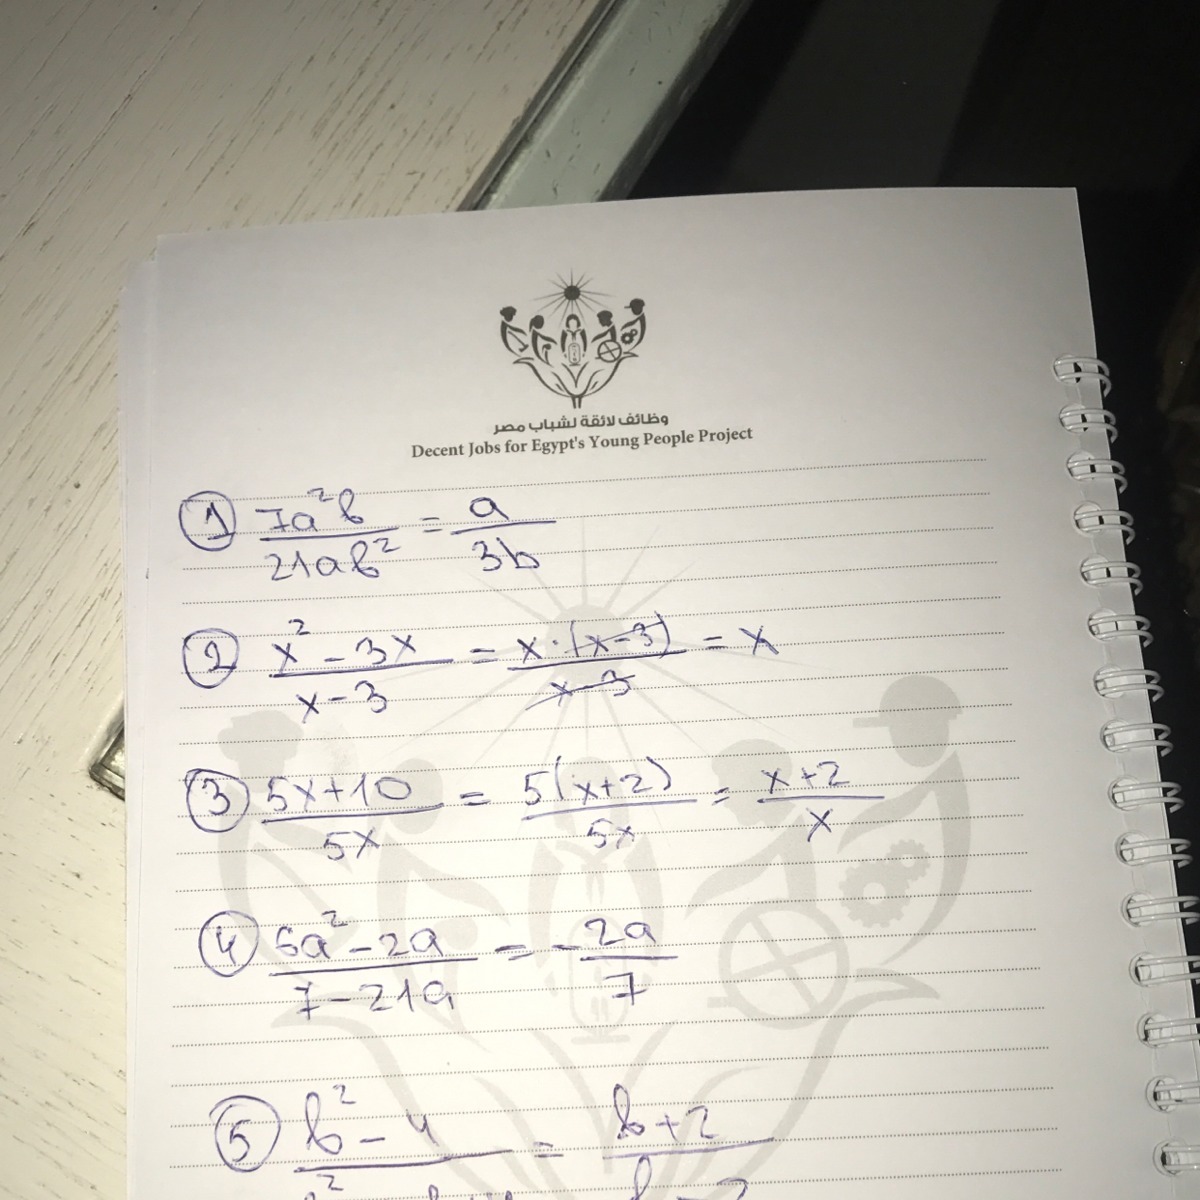 وظائف لائقة لشباب مصر
Decent Jobs for Egypt's Young People Project
① 7a²b / 21ab² = a / 3b
② x² - 3x / x - 3 = x · (x - 3) / x - 3 = x
③ 5x + 10 / 5x = 5(x + 2) / 5x = x + 2 / x
④ 6a² - 2a / 7 - 21a = - 2a / 7
⑤ b² - 4 = b + 2